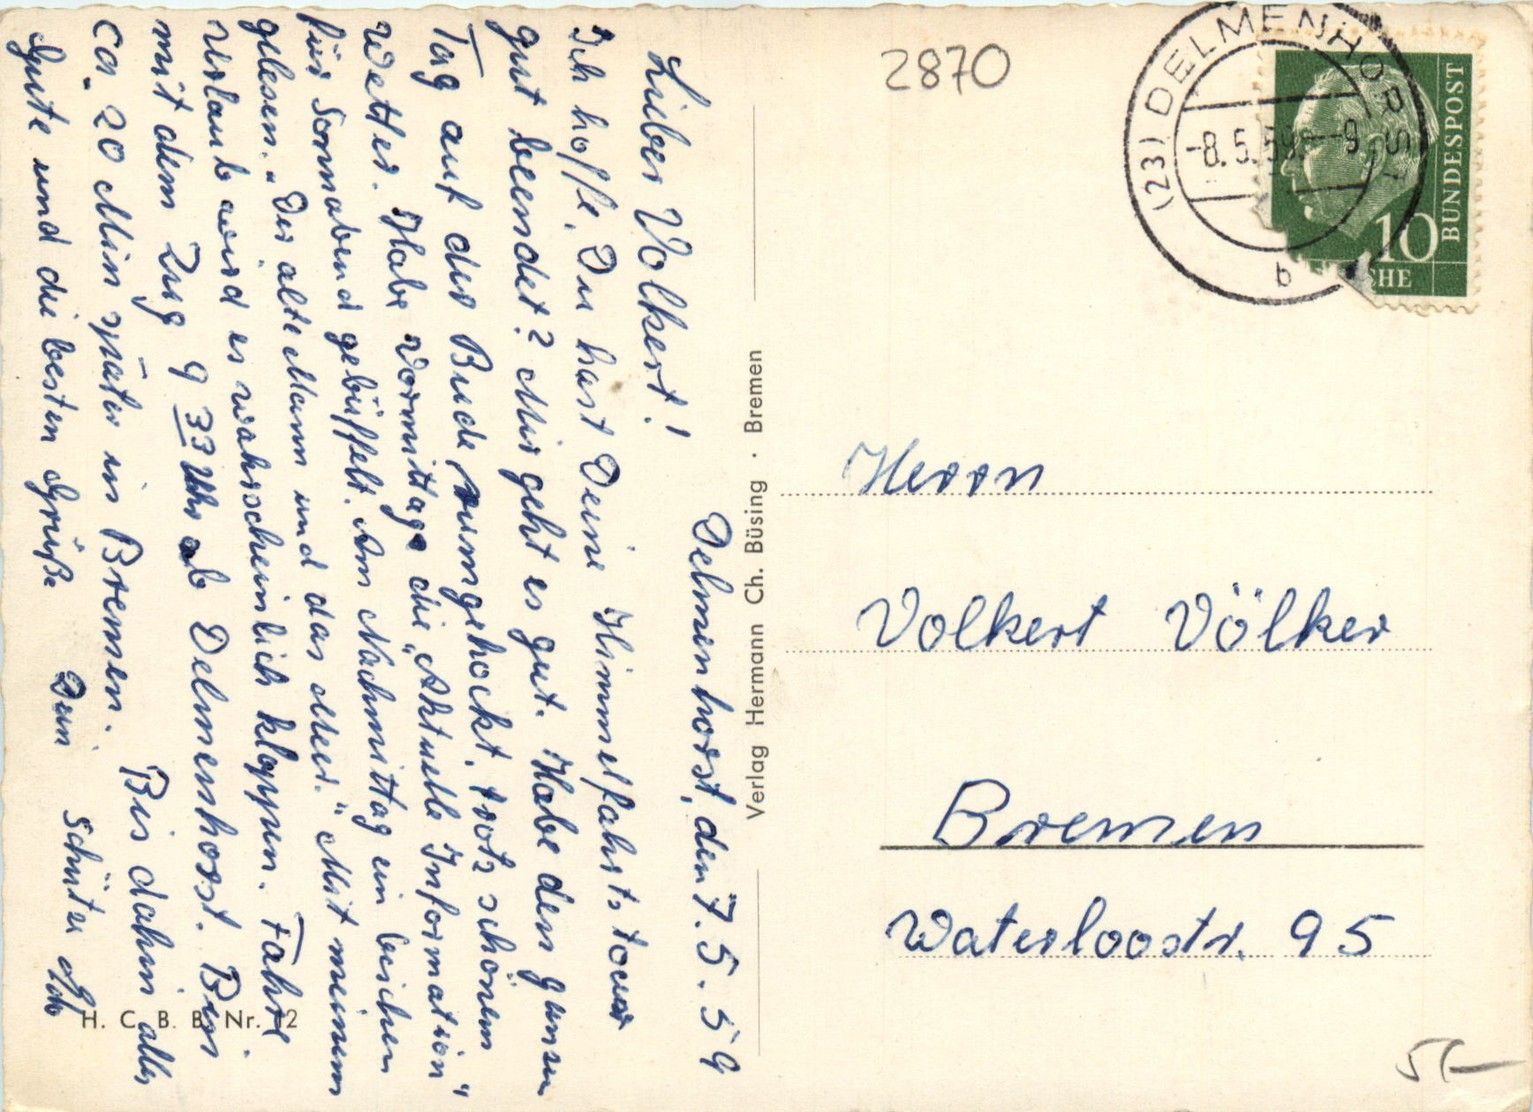 Delmenhorst, den 7.5.59
Lieber Volkert!
Ich hoffe, Du hast Deine Himmelfahrtstour
gut beendet? Mir geht es gut. Habe den ganzen
Tag auf der Bude rumgehockt, trotz schönem
Wetter. Habe vormittags die „Aktuelle Information"
für Sonnabend gebüffelt. Am Nachmittag ein bischen
gelesen. „Der alte Mann und das Meer." Mit meinem
Urlaub wird es wahrscheinlich klappen. Fahre
mit dem Zug 9 33 Uhr ab Delmenhorst. Bin
ca. 20 Min später in Bremen. Bis dahin alles
Gute und die besten Grüße
Dein Schüter
H. C. B. B. Nr. 12
Verlag Hermann Ch. Büsing · Bremen
2870
(23) DELMENHORST
-8.5.59.-9
b
BUNDESPOST
10
Herrn
Volkert Völker
Bremen
Waterloostr. 95
5,-